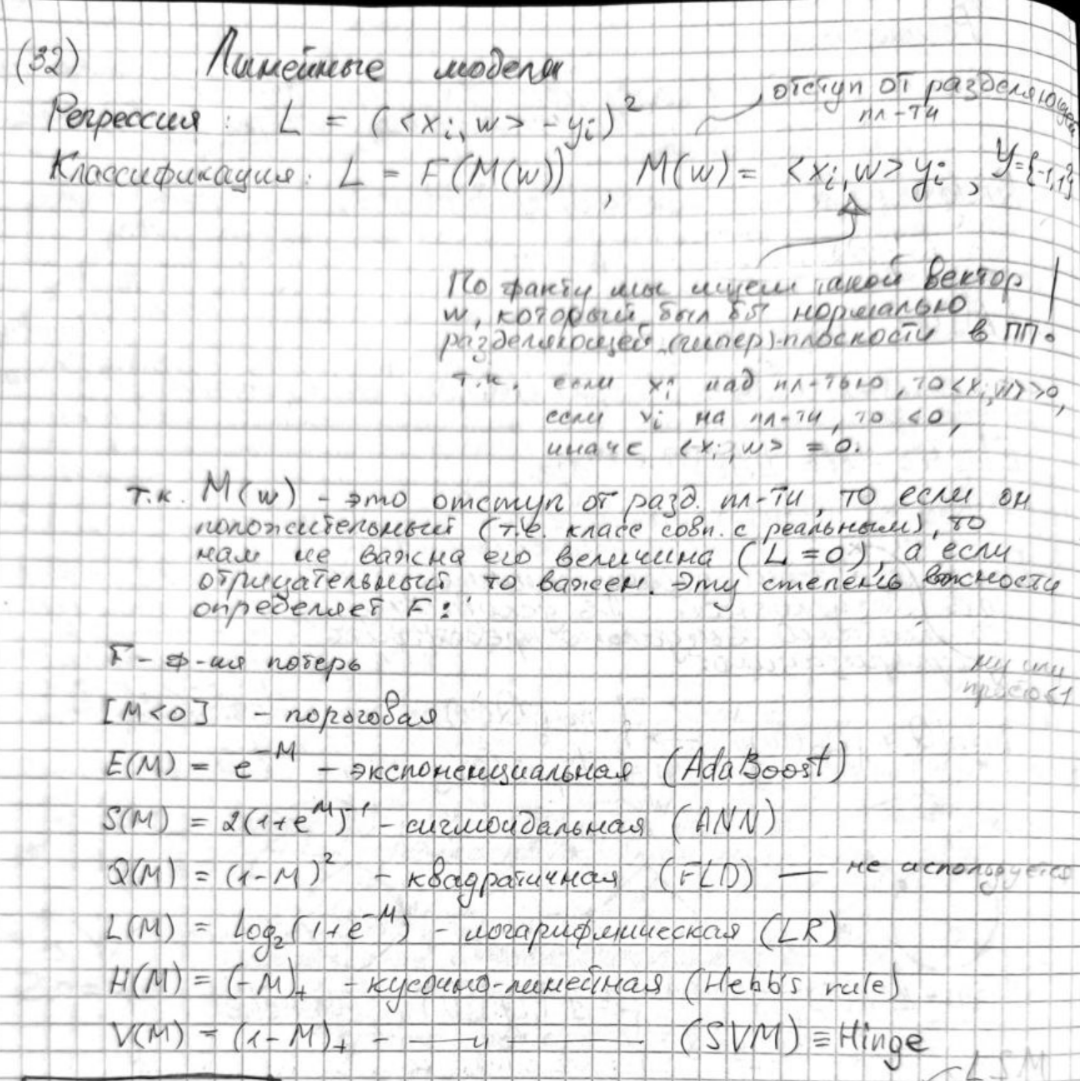 (32) Линейные модели
отступ от разделяющей
пл-ти
Регрессия: L = (<xᵢ, w> - yᵢ)²
Классификация: L = F(M(w)), M(w) = <xᵢ, w> yᵢ, Y={-1,1}
По факту мы ищем такой вектор
w, который был бы нормалью
разделяющей (гипер)-плоскости в ПП.
т.к. если xᵢ над пл-тью, то <xᵢ,w> >0,
если xᵢ на пл-ти, то <0,
иначе <xᵢ, w> = 0.
т.к. M(w) - это отступ от разд. пл-ти, то если он
положительный (т.е. класс совп. с реальным), то
нам не важна его величина (L=0), а если
отрицательный то важен. Эту степень важности
определяет F:
F - ф-ия потерь
ну или
просто <1
[M<0] - пороговая
E(M) = e^{-M} - экспоненциальная (AdaBoost)
S(M) = 2(1+e^{M})^{-1} - сигмоидальная (ANN)
Q(M) = (1-M)² - квадратичная (FLD) — не используется
L(M) = log₂(1+e^{-M}) - логарифмическая (LR)
H(M) = (-M)₊ - кусочно-линейная (Hebb's rule)
V(M) = (1-M)₊ - —— " —— (SVM) ≡ Hinge